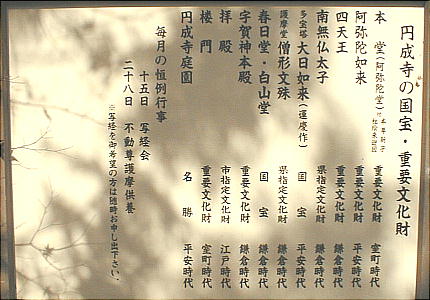 円成寺の国宝・重要文化財
本堂（阿弥陀堂） 重要文化財 室町時代
阿弥陀如来 重要文化財 平安時代
四天王 重要文化財 鎌倉時代
南無仏太子 県指定文化財 鎌倉時代
多宝塔 大日如来（運慶作） 国宝 平安時代
護摩堂 僧形文殊 県指定文化財 鎌倉時代
春日堂・白山堂 国宝 鎌倉時代
宇賀神本殿 重要文化財 鎌倉時代
拝殿 市指定文化財 江戸時代
楼門 重要文化財 室町時代
円成寺庭園 名勝 平安時代
毎月の恒例行事
十五日 写経会
二十八日 不動尊護摩供養
※写経を御希望の方は随時お申し出下さい。